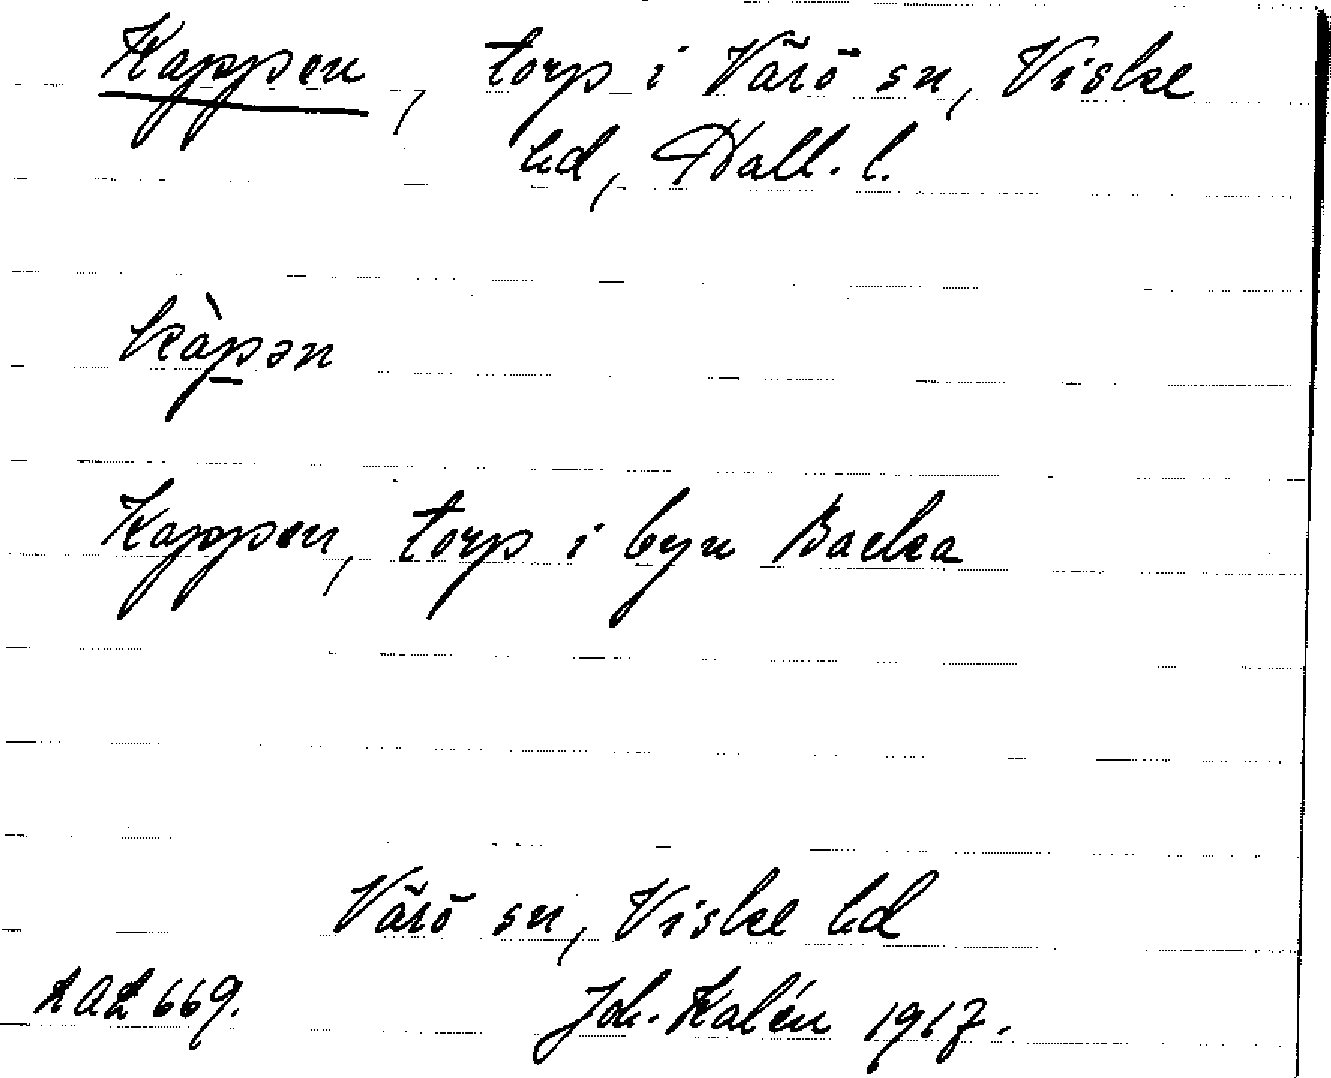 Kappen, torp i Värö sn, Viske
hd, Hall. l.
kàpən
Kappen, torp i byn Backa
Värö sn, Viske hd
LAL 669.
Joh. Kalén 1917.